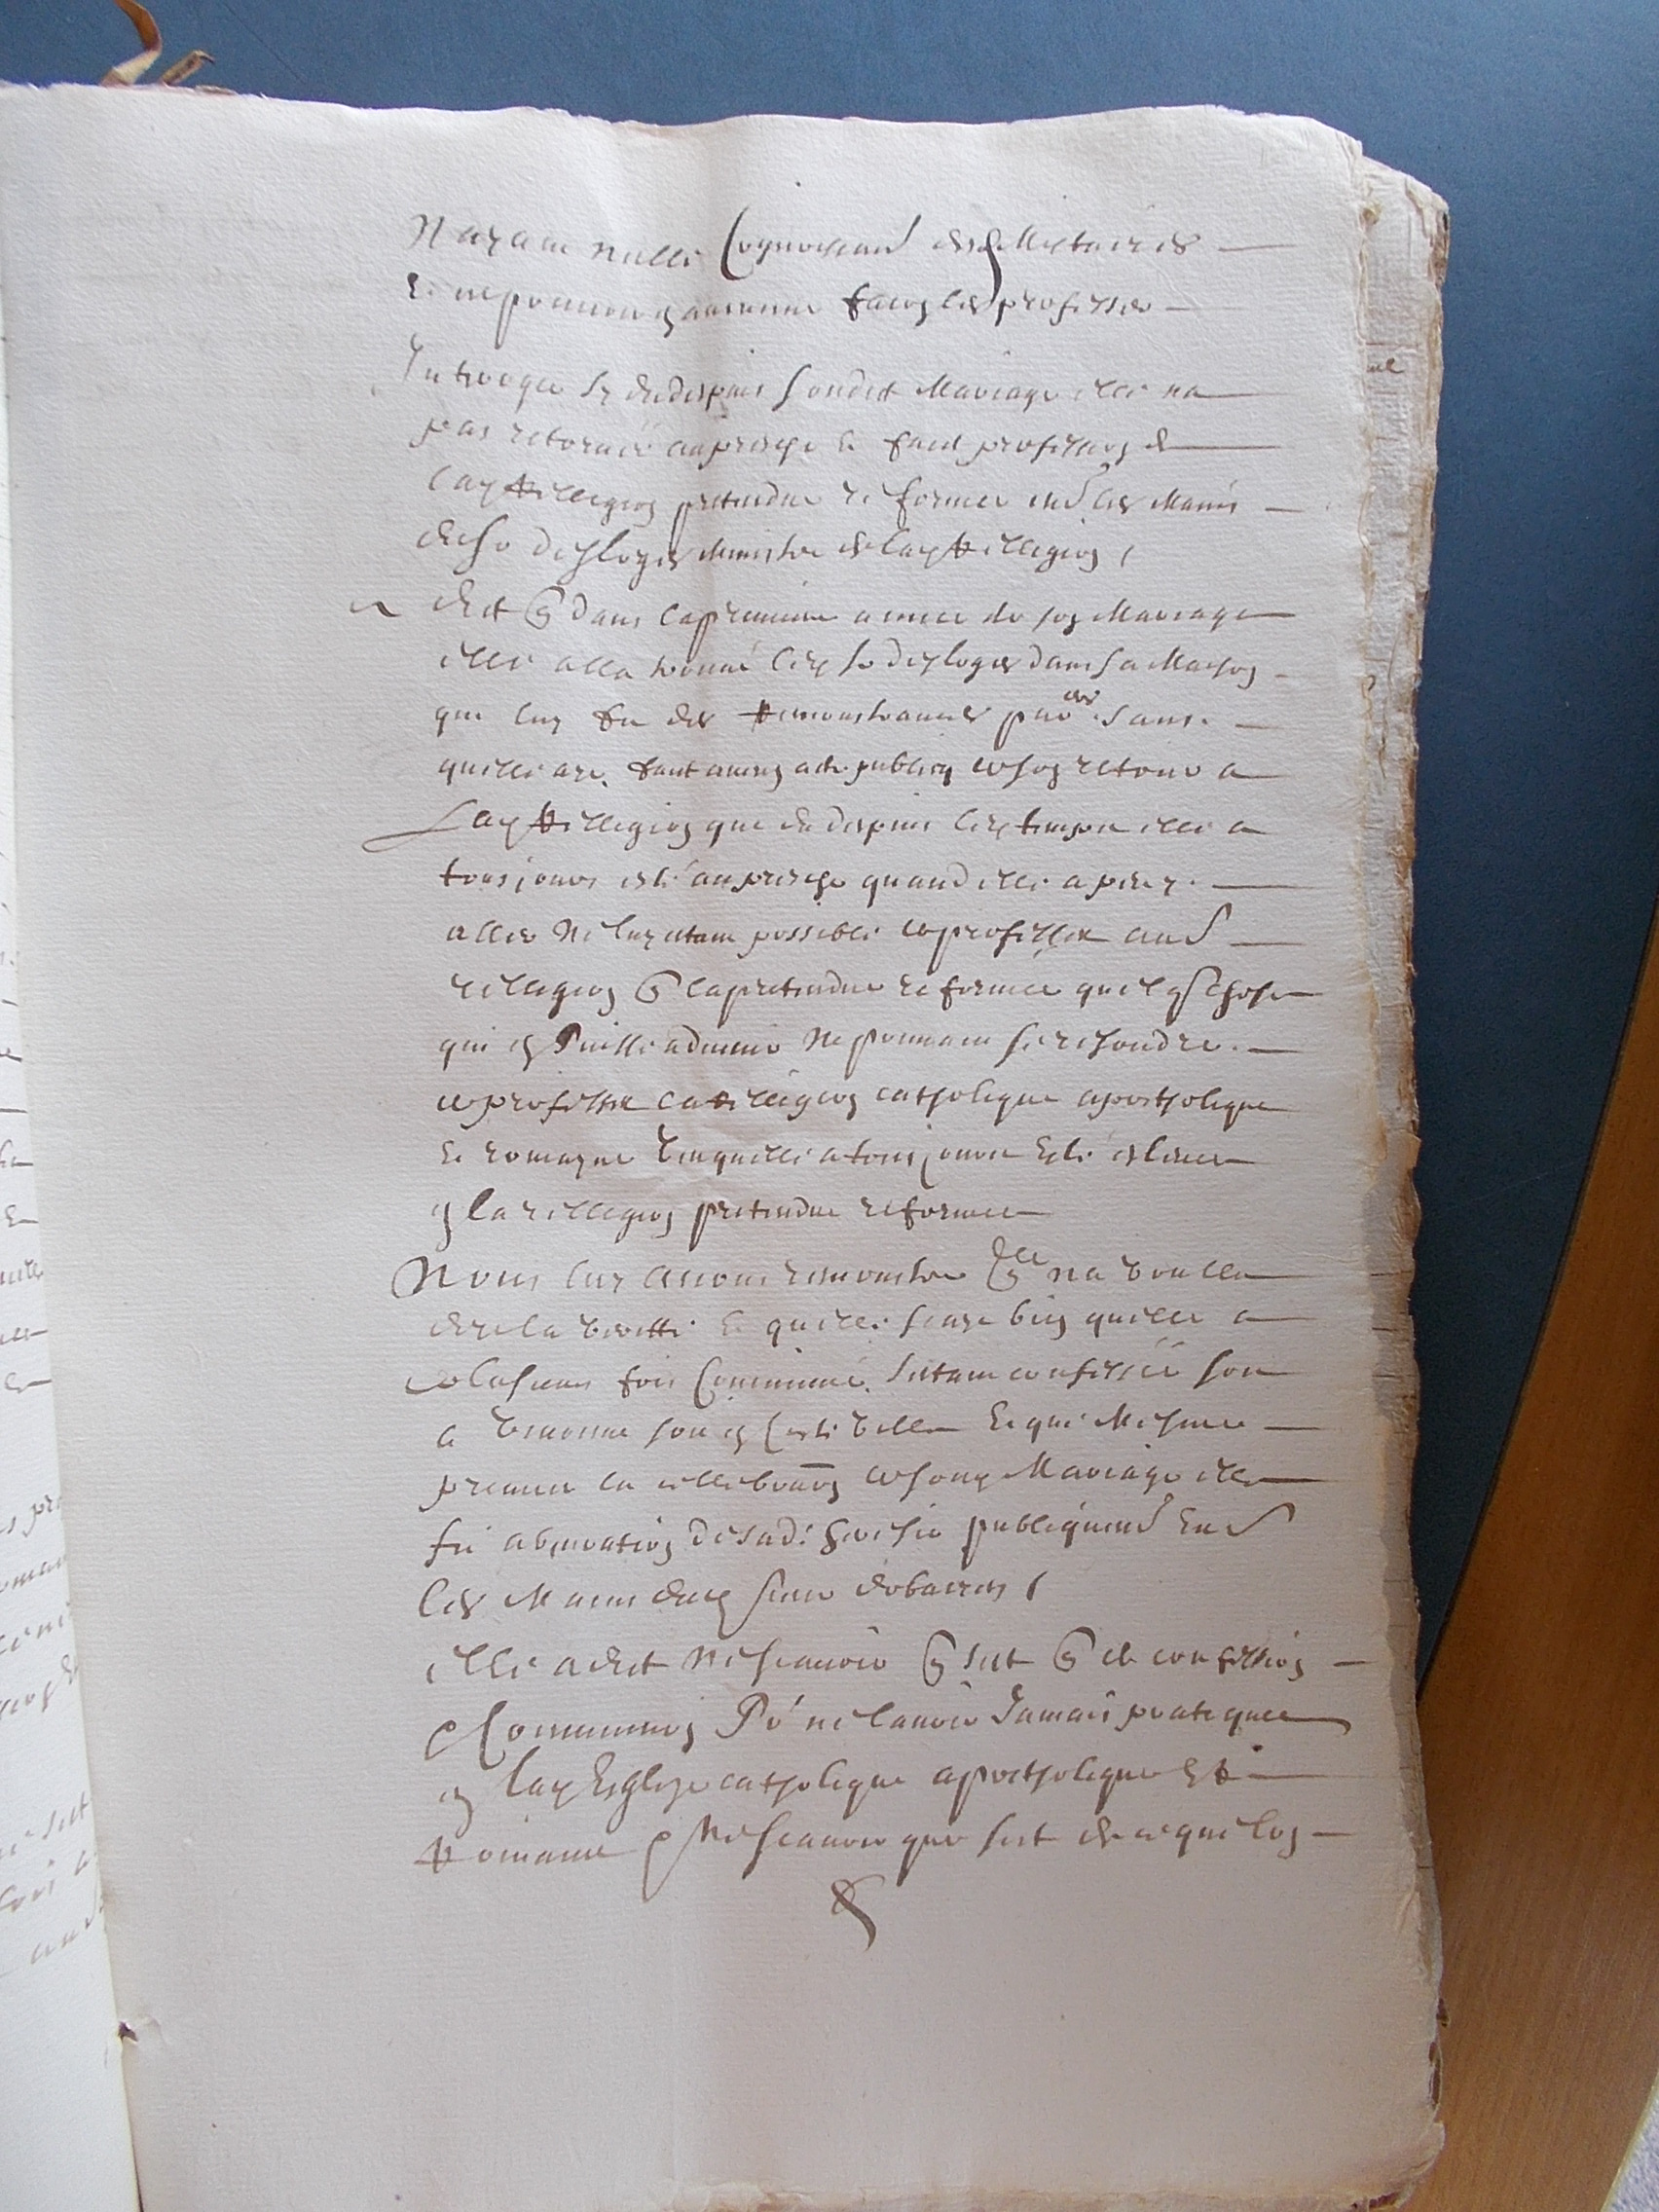 Nayant nulle Cognoissance des Misteires
Et ne pouvoir en aucune facon les professer
Interogee sy dedespuis sondit Mariage elle na
pas retourné au presche et faict profession de
lad Relligion pretendue refformee entre les mains
du sr Desloges Ministre de lad Relligion /
dict que dans la premiere annee de son Mariage
elle alla trouver led sr desloges dans sa Maison
qui luy fit des Remonstrances sans
quelle aye faict aucun acte publicq de son retour a
Lad Relligion que dedespuis led temps elle a
tousjours esté au presche quand elle a peu y
aller Ne luy estant possible de professer autre
relligion que la pretendue reformée quelque chose
qui en puisse advenir Ne pouvant se resoudre
de professer la Relligion catholique apostholique
Et romayne veu quelle a tousjours esté eslevee
en la relligion pretendue reformee
Nous luy avons remonstre quelle na voullu
dire la veritté Et quelle scayt bien quelle a
plusieurs fois Communié Sestant confessée soit
a soit en ceste ville Et que Mesmes
pravant la cellebration de sond Mariage elle
fit abjuration de sad. heresie publiquement Entre
les Mains dud sieur
elle a dict Ne scavoir que sest que de confession
et Communion Pour ne lavoir Jamais pratiquee
en lad Esglize catholique apostholique Et
Romaine et Ne scavoir que sest de ce que lon